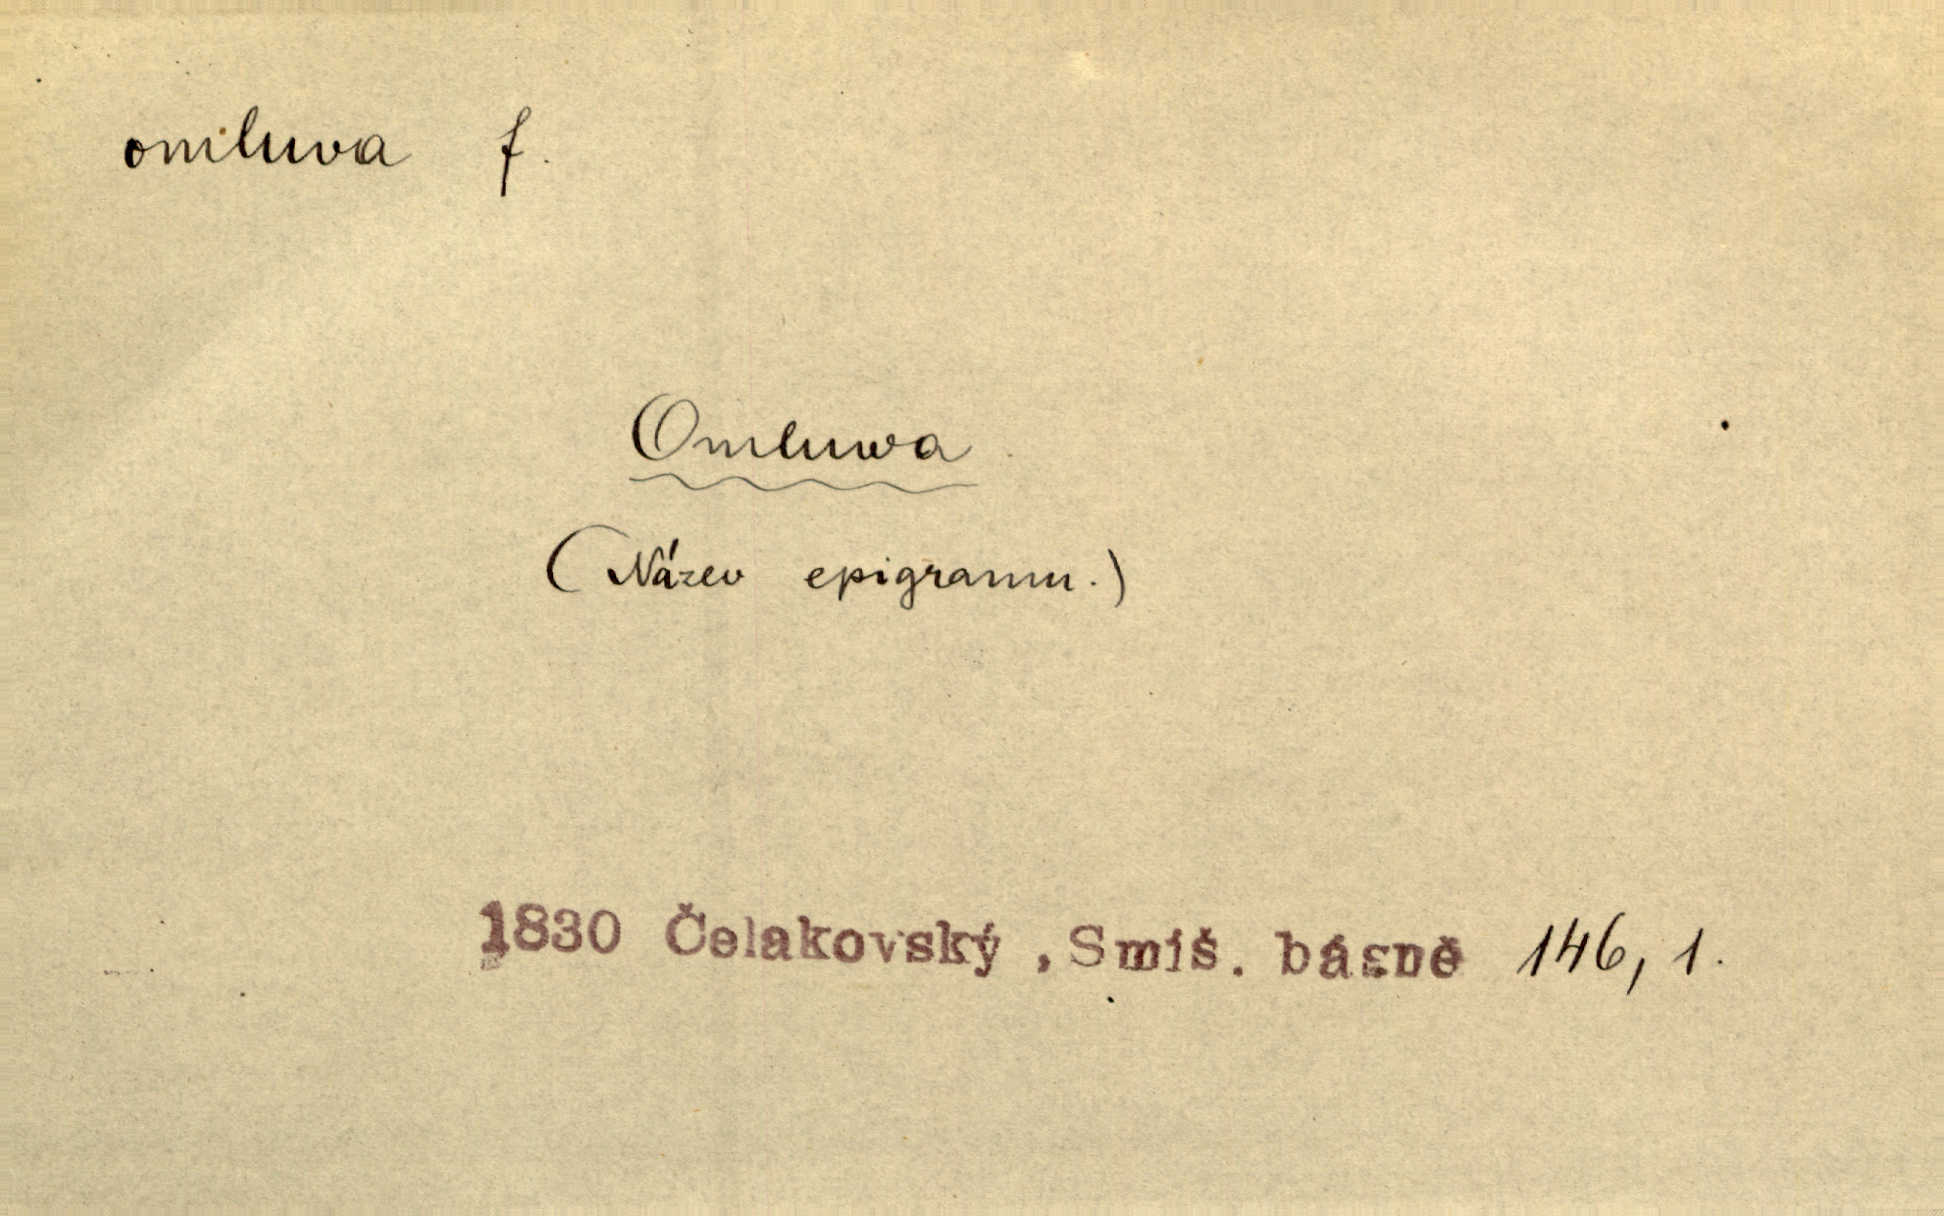 omluva f.
Omluwa
(Název epigramu.)
1830 Čelakovský, Smíš. básně 146, 1.